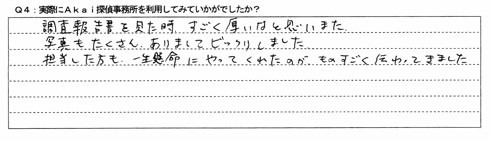 Q4：実際にAkai探偵事務所を利用してみていかがでしたか？
調査報告書を見た時、すごく厚いなと思いました
写真もたくさんありましてビックリしました
担当した方も、一生懸命にやってくれたのが、ものすごく伝わってきました